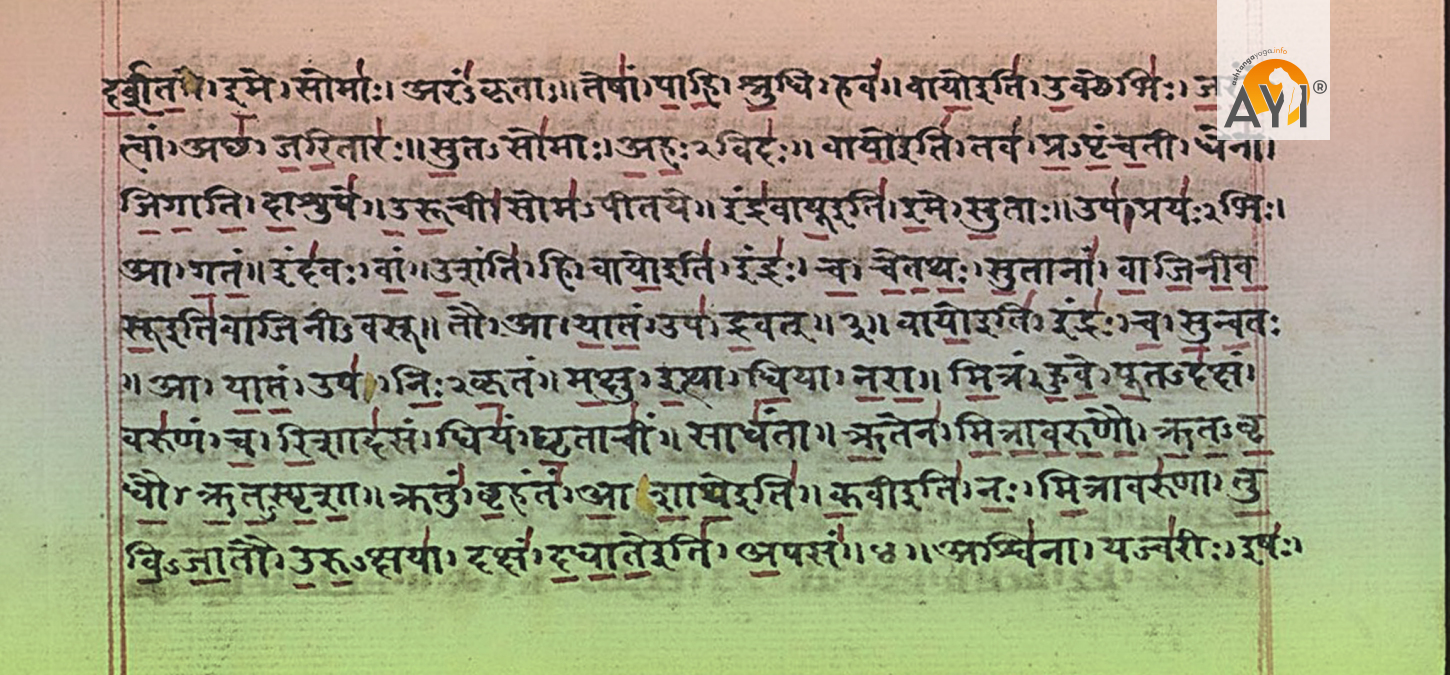 ashtangayoga.info
AYI®
दर्शत। इमे। सोमाः। अरंऽकृताः॥ तेषां। पाहि। श्रुधि। हवं॥ वायोइति। उक्थेभिः।
त्वां। अच्छ। जरितारः॥ सुतऽसोमाः। अहःऽविदः॥ वायोइति। तव। प्रऽपृंचती। धेना।
जिगाति। दाशुषे॥ उरूची। सोमऽपीतये॥ इंद्रवायूइति। इमे। सुताः॥ उप। प्रयःऽभिः।
आ। गतं॥ इंदवः। वां॥ उशंति। हि। वायोइति। इंद्रः। च। चेतथः। सुतानां। वाजिनीव
सूइतिवाजिनीऽवसू॥ तौ। आ। यातं। उप। द्रवत्॥ ३॥ वायोइति। इंद्रः। च। सुन्वतः
॥ आ। यातं। उप। निःऽकृतं॥ मक्षु। इत्था। धिया। नरा॥ मित्रं। हुवे। पूतऽदक्षं।
वरुणं। च। रिशादसं। धियं। घृताचीं॥ साधंता॥ ऋतेन। मित्रावरुणौ। ऋतऽवृ
धौ। ऋतऽस्पृशा॥ क्रतुं। बृहंतं। आ शाथेइति॥ कवीइति। नः। मित्रावरुणा। तु
विऽजातौ। उरुऽक्षया। दक्षं। दधातेइति। अपसं॥ ४॥ अश्विना। यज्वरीः। इषः।